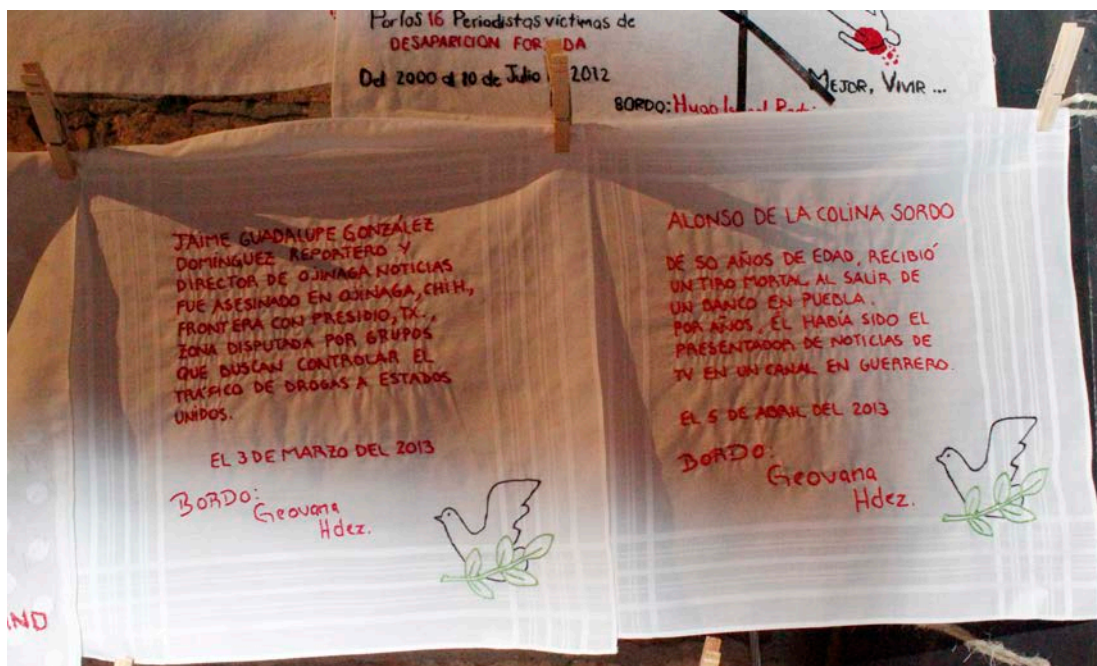 Por los 16 Periodistas víctimas de
DESAPARICION
Del 2000 al 10 de Julio 2012
MEJOR, VIVIR ...
BORDO: Hugo
JAIME GUADALUPE GONZÁLEZ
DOMÍNGUEZ REPORTERO Y
DIRECTOR DE OJINAGA NOTICIAS
FUE ASESINADO EN OJINAGA, CHIH.,
FRONTERA CON PRESIDIO, TX.,
ZONA DISPUTADA POR GRUPOS
QUE BUSCAN CONTROLAR EL
TRÁFICO DE DROGAS A ESTADOS
UNIDOS.
EL 3 DE MARZO DEL 2013
BORDO:
Geovana
Hdez.
ALONSO DE LA COLINA SORDO
DE 50 AÑOS DE EDAD, RECIBIÓ
UN TIRO MORTAL AL SALIR DE
UN BANCO EN PUEBLA.
POR AÑOS, ÉL HABÍA SIDO EL
PRESENTADOR DE NOTICIAS DE
TV EN UN CANAL EN GUERRERO.
EL 5 DE ABRIL DEL 2013
BORDO:
Geovana
Hdez.